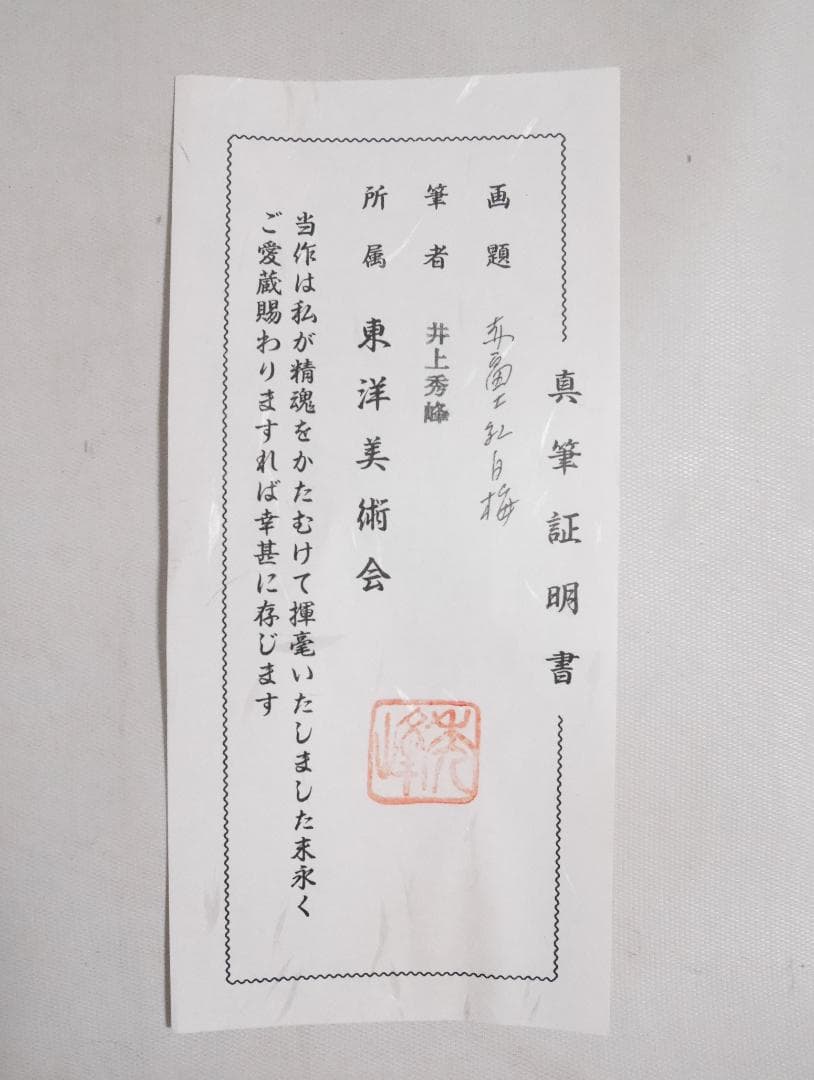 真筆証明書
画題 赤富士紅白梅
筆者 井上秀峰
所属 東洋美術会
当作は私が精魂をかたむけて揮毫いたしました末永く
ご愛蔵賜わりますれば幸甚に存じます
秀峰